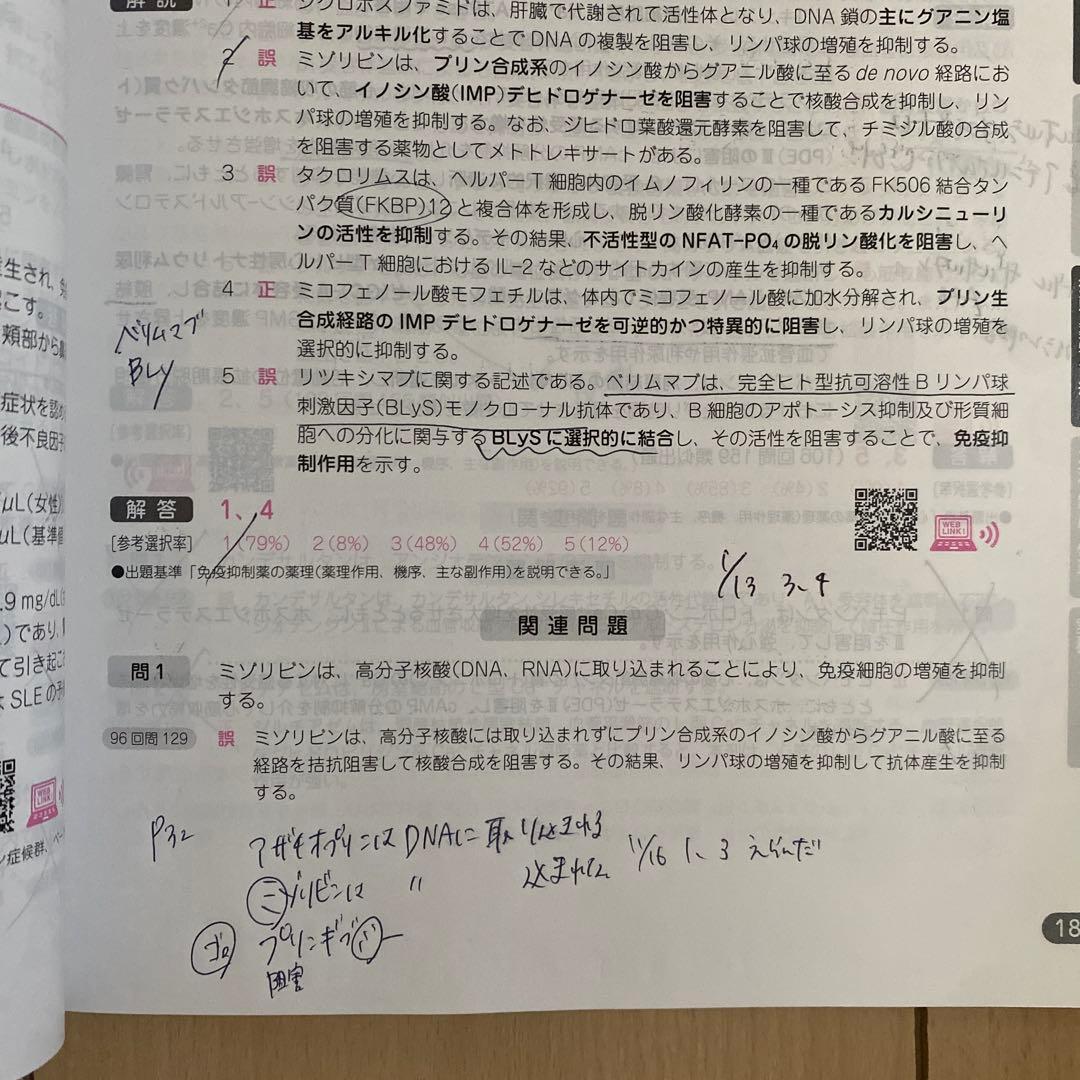 解説
1 正 シクロホスファミドは、肝臓で代謝されて活性体となり、DNA 鎖の主にグアニン塩
基をアルキル化することで DNA の複製を阻害し、リンパ球の増殖を抑制する。
2 誤 ミゾリビンは、プリン合成系のイノシン酸からグアニル酸に至る de novo 経路にお
いて、イノシン酸(IMP)デヒドロゲナーゼを阻害することで核酸合成を抑制し、リン
パ球の増殖を抑制する。なお、ジヒドロ葉酸還元酵素を阻害して、チミジル酸の合成
を阻害する薬物としてメトトレキサートがある。
3 誤 タクロリムスは、ヘルパー T 細胞内のイムノフィリンの一種である FK506 結合タン
パク質(FKBP)12と複合体を形成し、脱リン酸化酵素の一種であるカルシニューリ
ンの活性を抑制する。その結果、不活性型の NFAT-PO₄ の脱リン酸化を阻害し、ヘ
ルパー T 細胞における IL-2 などのサイトカインの産生を抑制する。
4 正 ミコフェノール酸モフェチルは、体内でミコフェノール酸に加水分解され、プリン生
合成経路の IMP デヒドロゲナーゼを可逆的かつ特異的に阻害し、リンパ球の増殖を
選択的に抑制する。
5 誤 リツキシマブに関する記述である。ベリムマブは、完全ヒト型抗可溶性 B リンパ球
刺激因子(BLyS)モノクローナル抗体であり、B 細胞のアポトーシス抑制及び形質細
胞への分化に関与する BLyS に選択的に結合し、その活性を阻害することで、免疫抑
制作用を示す。
ベリムマブ
BLy
解答 1、4
[参考選択率] 1(79%) 2(8%) 3(48%) 4(52%) 5(12%)
●出題基準「免疫抑制薬の薬理(薬理作用、機序、主な副作用)を説明できる。」
WEB LINK!
1/13 3、4
関連問題
問1 ミゾリビンは、高分子核酸(DNA、RNA)に取り込まれることにより、免疫細胞の増殖を抑制
する。
96回問129 誤 ミゾリビンは、高分子核酸には取り込まれずにプリン合成系のイノシン酸からグアニル酸に至る
経路を拮抗阻害して核酸合成を阻害する。その結果、リンパ球の増殖を抑制して抗体産生を抑制
する。
P32 アザチオプリンは DNAに取り込まれる
ミゾリビンは 〃 込まれない
11/16 1、3 えらんだ
ゴロ プリンギブバー
阻害
18
生され、
こす。
頬部から
症状を認め
後不良因子
μL(女性)
μL(基準値
.9 mg/dL
)であり、
て引き起こ
SLE の
WEB LINK!
ン症候群、